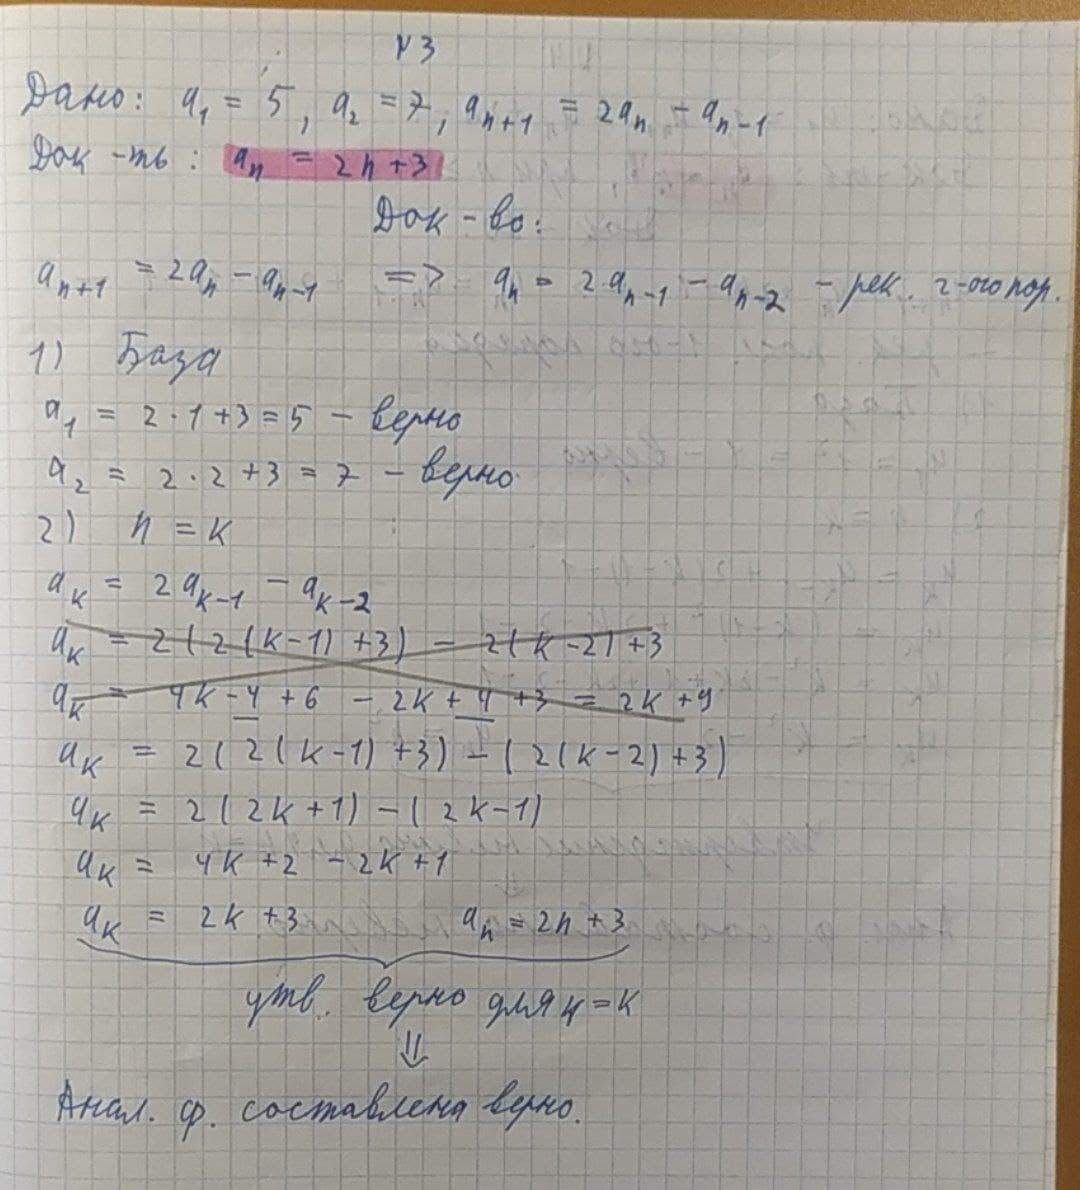 №3
Дано: a₁ = 5, a₂ = 7, aₙ₊₁ = 2aₙ - aₙ₋₁
Док-ть: aₙ = 2n+3
Док-во:
aₙ₊₁ = 2aₙ - aₙ₋₁ => aₙ = 2·aₙ₋₁ - aₙ₋₂ - рек. 2-ого пор.
1) База
a₁ = 2·1+3=5 - верно
a₂ = 2·2+3=7 - верно
2) n = k
aₖ = 2aₖ₋₁ - aₖ₋₂
aₖ = 2(2(k-1)+3) - 2(k-2)+3
aₖ = 4k-4+6 - 2k+4+3 = 2k+9
aₖ = 2(2(k-1)+3) - (2(k-2)+3)
aₖ = 2(2k+1)-(2k-1)
aₖ = 4k+2-2k+1
aₖ = 2k+3 aₙ=2n+3
утв. верно для n=k
⇓
Анал. ф. составлена верно.